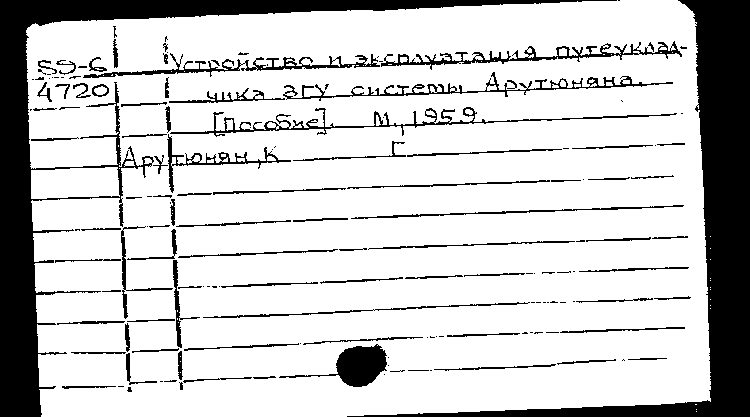 59-6 Устройство и эксплуатация путеуклад-
4720 чика ЗГУ системы Арутюняна.
[Пособие]. М., 1959.
Арутюнян, К Г